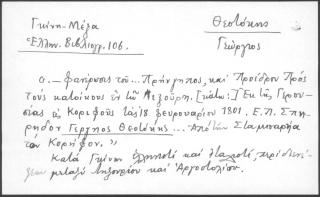 Γκίνη-Μέξα
Ἑλλην. Βιβλιογρ. 106.
Θεοτόκης
Γεώργιος
α.- φανέρωσις τοῦ... Πρήγγηπος, καὶ Προέδρου Πρὸς
τοὺς κατοίκους ἐν τῶ Ληξούρη. [κάτω:] Ἐκ τῆς Γερου-
σίας τῆς Κορυφοῦς τῆς 18 Φευρουαρίου 1801. Ε.Π. Σπη-
ρηδον Γεργηος Θεοτόκης... Ἀπὸ τὴν Σταμπαρήα
τὸν Κορήφον.»
Κατὰ Γκίνην ἑλληνιστὶ καὶ ἰταλιστί,
μεταξὺ Ληξουρίου καὶ Ἀργοστολίου.